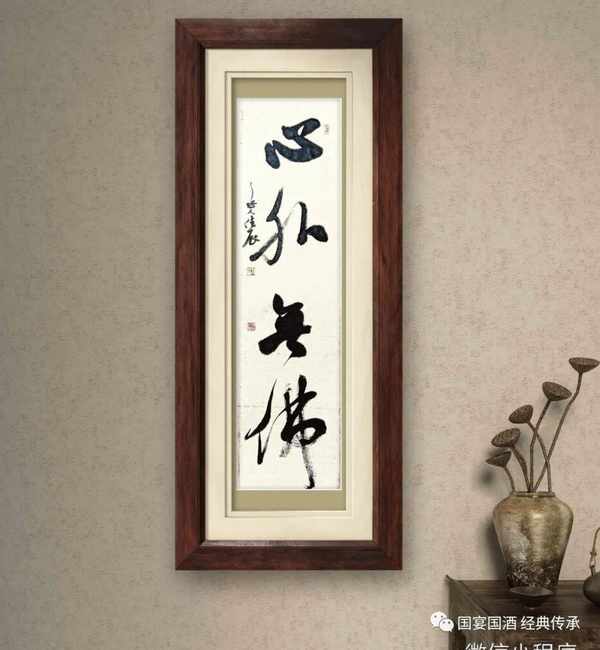 心外無佛
国宴国酒 经典传承
微信小程序